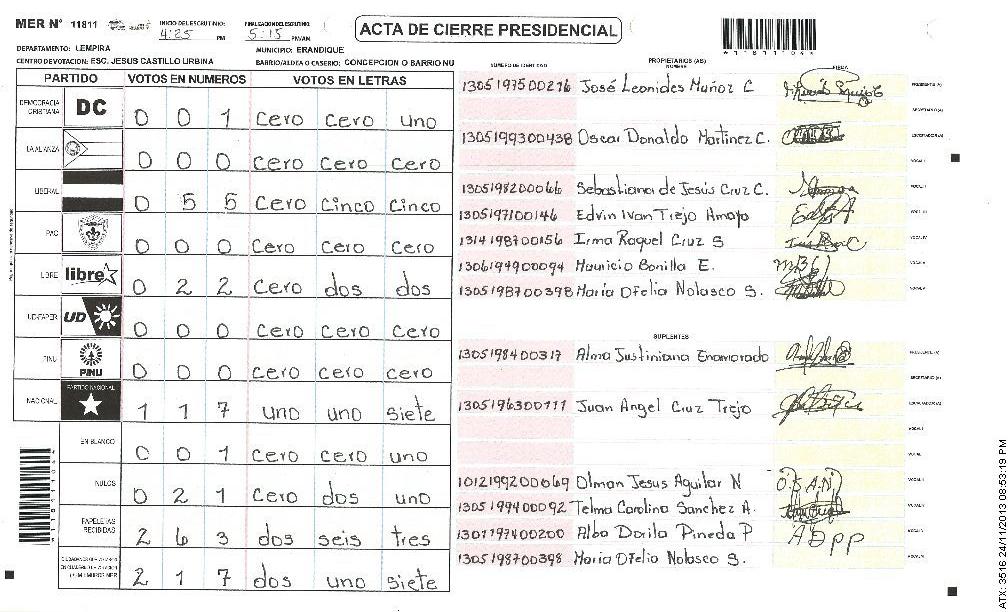 MER N° 11811 INICIO DEL ESCRUTINIO: 4:25 PM FINALIZACION DEL ESCRUTINIO: 5:15 PM/AM
ACTA DE CIERRE PRESIDENCIAL
DEPARTAMENTO: LEMPIRA MUNICIPIO: ERANDIQUE
CENTRO DE VOTACION: ESC. JESUS CASTILLO URBINA BARRIO/ALDEA O CASERIO: CONCEPCION O BARRIO NU
PARTIDO VOTOS EN NUMEROS VOTOS EN LETRAS
DEMOCRACIA CRISTIANA DC 0 0 1 cero cero uno
LA ALIANZA 0 0 0 cero cero cero
LIBERAL 0 5 5 cero cinco cinco
PAC 0 0 0 cero cero cero
LIBRE libre 0 2 2 cero dos dos
UD-FAPER UD 0 0 0 cero cero cero
PINU PINU 0 0 0 cero cero cero
NACIONAL PARTIDO NACIONAL 1 1 7 uno uno siete
EN BLANCO 0 0 1 cero cero uno
NULOS 0 2 1 cero dos uno
PAPELETAS RECIBIDAS 2 6 3 dos seis tres
2 1 7 dos uno siete
NUMERO DE IDENTIDAD PROPIETARIOS (AS) NOMBRE FIRMA
1305197500276 José Leonides Muñoz C PRESIDENTE (A)
SECRETARIO (A)
1305199300438 Oscar Donaldo Martinez C. ESCRUTADOR (A)
VOCAL I
1305198200066 Sebastiana de Jesús Cruz C. VOCAL II
1305197100146 Edvin Ivan Trejo Amaya VOCAL III
1314198700156 Irma Raquel Cruz S VOCAL IV
1306194900094 Mauricio Bonilla E. VOCAL V
1305198700398 Maria Ofelia Nolasco S.
SUPLENTES
1305198400317 Alma Justiniana Enamorado PRESIDENTE (A)
SECRETARIO (A)
1305196300111 Juan Angel Cruz Trejo ESCRUTADOR (A)
VOCAL I
1012199200069 Olman Jesus Aguilar N O.J.A.N
1305199400092 Telma Carolina Sanchez A.
1301197400200 Alba Dorila Pineda P ADPP
1305198700398 Maria Ofelia Nolasco S.
ATX: 3516 24/11/2013 08:53:19 PM